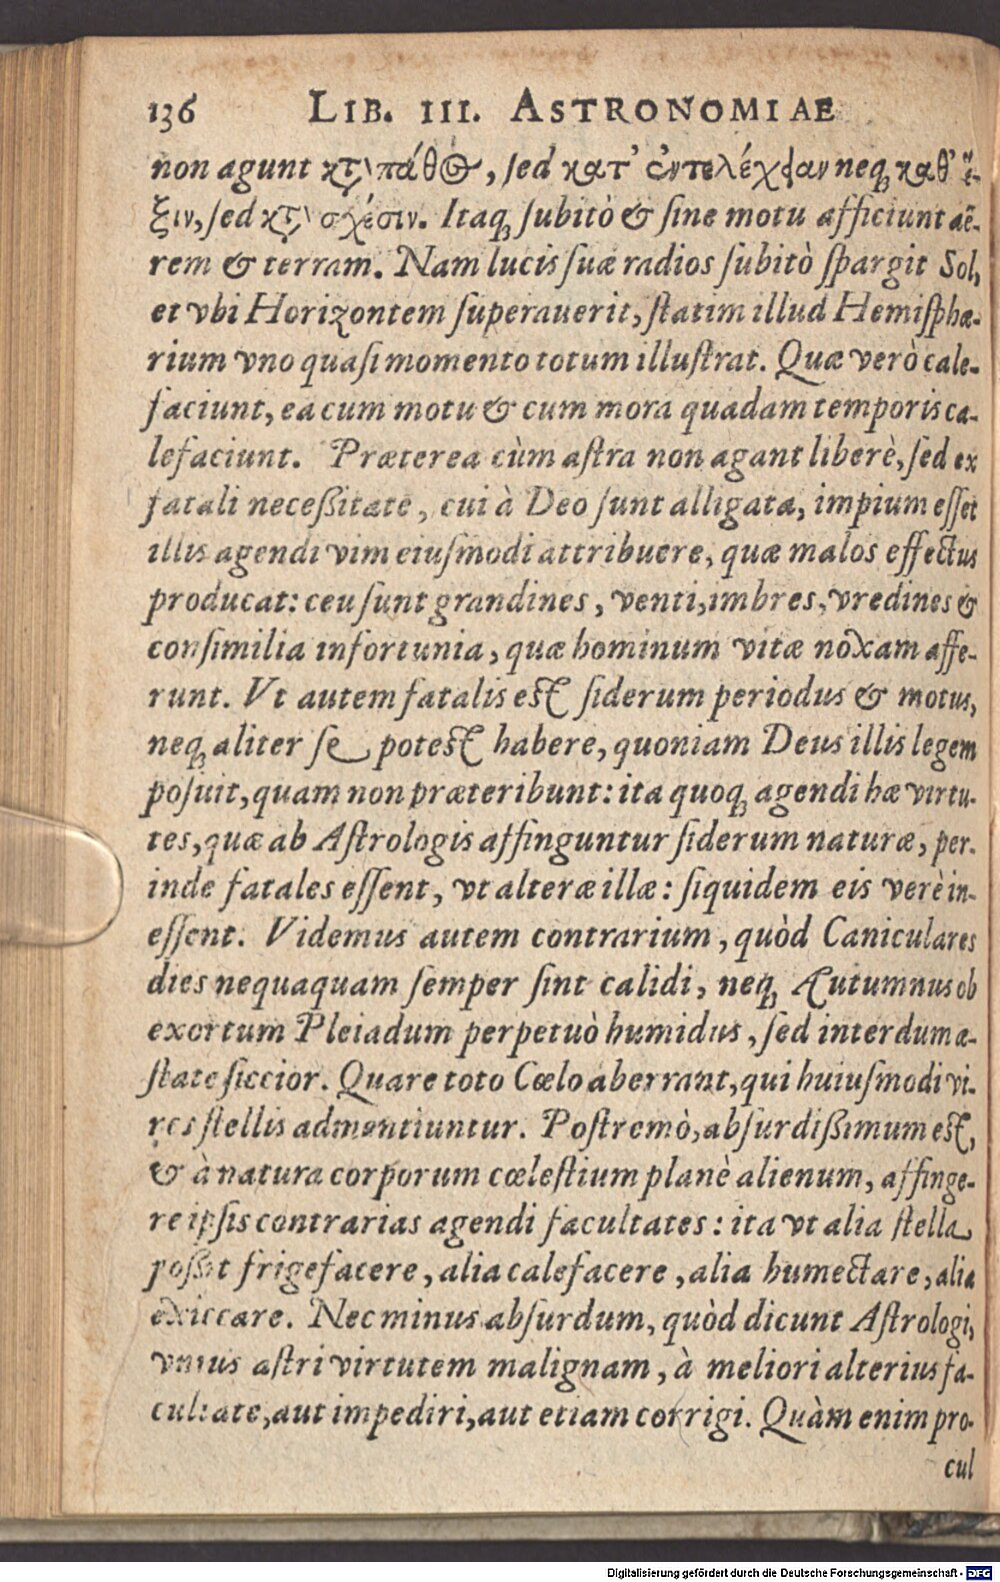 136 LIB. III. ASTRONOMIAE
non agunt κτ̀ πάθος, ſed κατ' ἐντελέχειαν neq; καθ' ἕ-
ξιν, ſed κτ̀ σχέσιν. Itaq; ſubitò & ſine motu afficiunt aë-
rem & terram. Nam lucis ſuæ radios ſubitò ſpargit Sol,
et vbi Horizontem ſuperauerit, ſtatim illud Hemiſphæ-
rium vno quaſi momento totum illuſtrat. Quæ verò cale-
faciunt, ea cum motu & cum mora quadam temporis ca-
lefaciunt. Præterea cùm aſtra non agant liberè, ſed ex
fatali neceßitate, cui à Deo ſunt alligata, impium eſſet
illis agendi vim eiuſmodi attribuere, quæ malos effectus
producat: ceu ſunt grandines, venti, imbres, vredines &
conſimilia infortunia, quæ hominum vitæ noxam affe-
runt. Vt autem fatalis eſt ſiderum periodus & motus,
neq; aliter ſe poteſt habere, quoniam Deus illis legem
poſuit, quam non præteribunt: ita quoq; agendi hæ virtu-
tes, quæ ab Aſtrologis affinguntur ſiderum naturæ, per-
inde fatales eſſent, vt alteræ illæ: ſiquidem eis verè in-
eſſent. Videmus autem contrarium, quòd Caniculares
dies nequaquam ſemper ſint calidi, neq; Autumnus ob
exortum Pleiadum perpetuò humidus, ſed interdum æ-
ſtate ſiccior. Quare toto Cœlo aberrant, qui huiuſmodi vi-
res ſtellis admentiuntur. Poſtremò, abſurdißimum eſt,
& à natura corporum cœleſtium planè alienum, affinge-
re ipſis contrarias agendi facultates: ita vt alia ſtella
poßit frigefacere, alia calefacere, alia humectare, alia
exiccare. Nec minus abſurdum, quòd dicunt Aſtrologi,
vnius aſtri virtutem malignam, à meliori alterius fa-
cultate, aut impediri, aut etiam corrigi. Quàm enim pro-
cul
Digitalisierung gefördert durch die Deutsche Forschungsgemeinschaft - DFG